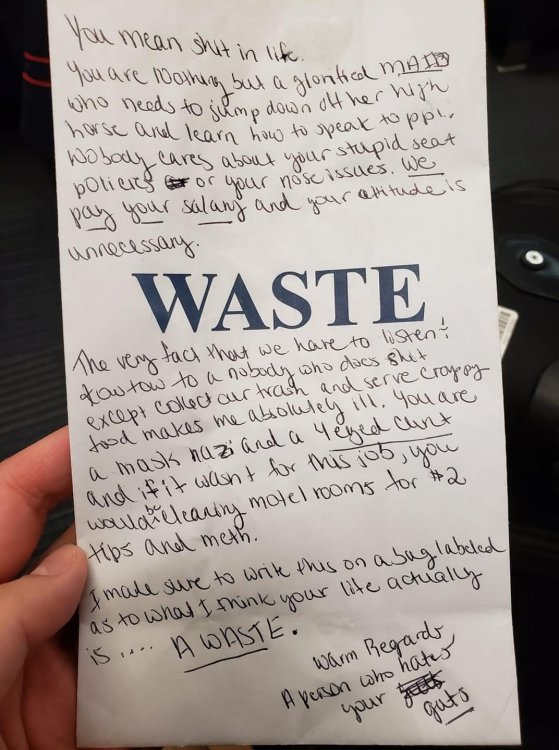 You mean shit in life.
You are nothing but a glorified MAID
who needs to jump down off her high
horse and learn how to speak to ppl.
Nobody cares about your stupid seat
policies or your nose issues. We
pay your salary and your attitude is
unnecessary.
WASTE
The very fact that we have to listen &
kowtow to a nobody who does shit
except collect our trash and serve crappy
food makes me absolutely ill. You are
a mask nazi and a 4 eyed cunt
and if it wasnt for this job, you
would be cleaning motel rooms for #2
tips and meth.
I made sure to write this on a bag labeled
as to what I think your life actually
is .... A WASTE.
Warm Regards
A person who hates
your guts